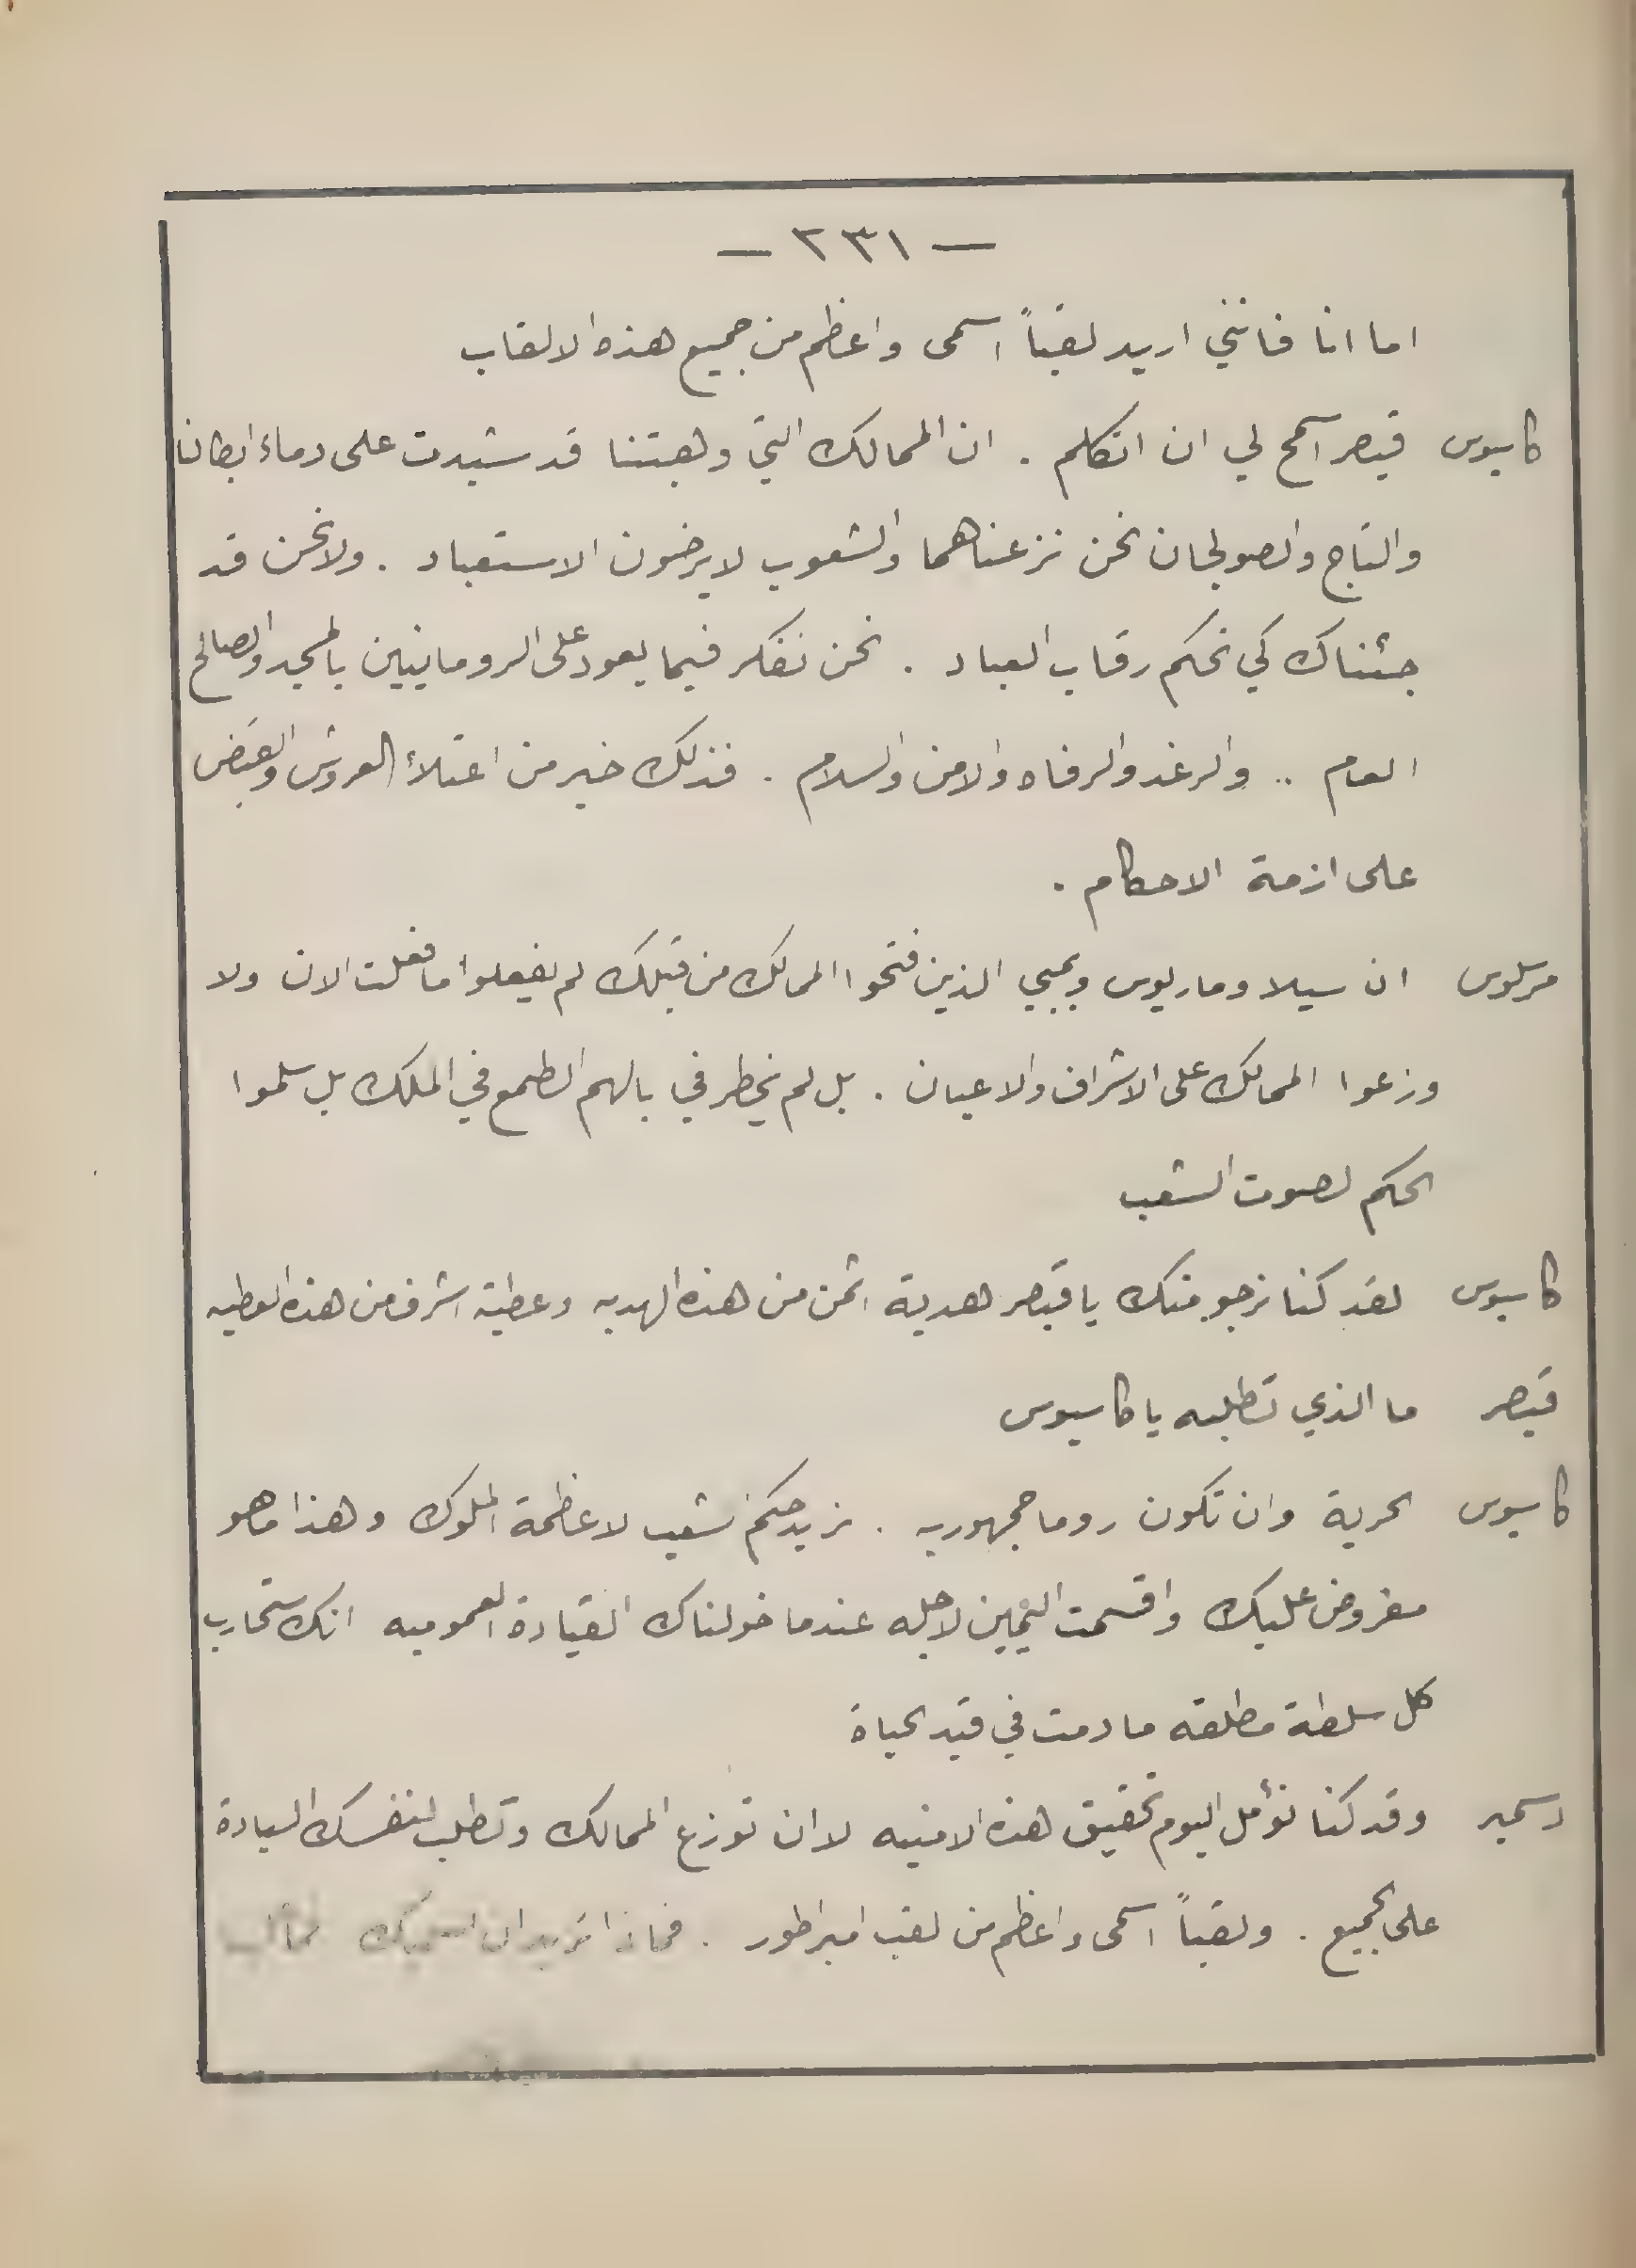 — ٢٣١ —
اما انا فانني اريد لقباً اسمى واعظم من جميع هذه الالقاب
كاسيوس قيصر اسمح لي ان اتكلم . ان الممالك التي وهبتنا قد شيدت على دماء ابطالنا
والتاج والصولجان نحن نزعناهما والشعوب لا يرضون الاستعباد . ولا نحن قد
جئناك كي نحكم رقاب العباد . نحن نفكر فيما يعود على الرومانيين بالمجد والصالح
العام .. والرغد والرفاه والامن والسلام . فذلك خير من اعتلاء العروش والقبض
على ازمة الاحكام .
مرسلوس ان سيلا وماريوس وبمبي الذين فتحوا الممالك من قبلك لم يفعلوا ما فعلت الان ولا
وزعوا الممالك على الاشراف والاعيان . بل لم يخطر في بالهم الطمع في الملك بل سلموا
الحكم لصوت الشعب
كاسيوس لقد كنا نرجو منك يا قيصر هدية اثمن من هذه الهديه وعطية اشرف من هذه العطيه
قيصر ما الذي تطلبه يا كاسيوس
كاسيوس الحرية وان تكون روما جمهوريه . نريد حكم شعب لا عظمة الملوك وهذا ما هو
مفروض عليك واقسمت اليمين لاجله عندما خولناك القيادة العموميه انك ستحارب
كل سلطة مطلقه ما دمت في قيد الحياة
دسمير وقد كنا نؤمل اليوم تحقيق هذه الامنيه لا ان توزع الممالك وتطلب لنفسك السيادة
على الجميع . ولقباً اسمى واعظم من لقب امبراطور . فماذا تريد ان